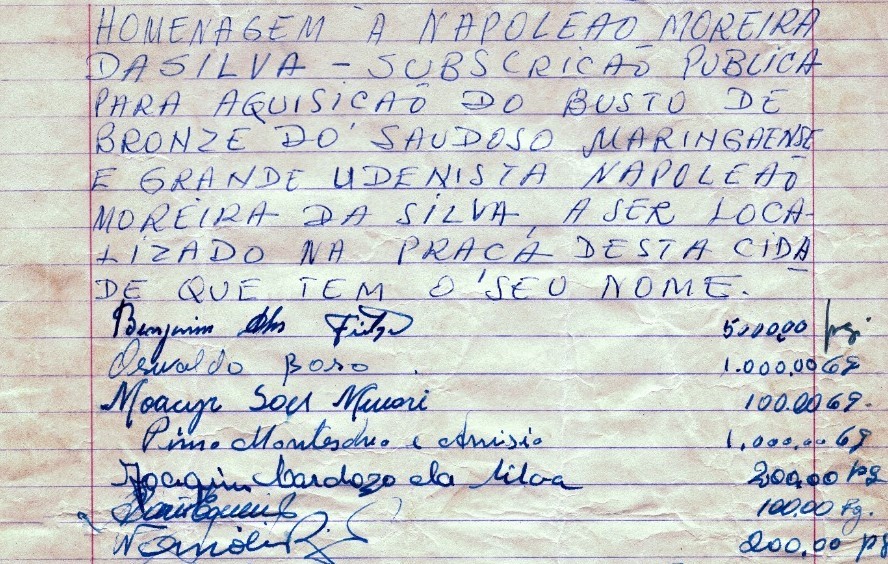 HOMENAGEM A NAPOLEAO MOREIRA
DA SILVA - SUBSCRICAÕ PUBLICA
PARA AQUISICAÕ DO BUSTO DE
BRONZE DO SAUDOSO MARINGAENSE
E GRANDE UDENISTA NAPOLEAÕ
MOREIRA DA SILVA, A SER LOCA-
LIZADO NA PRAÇA DESTA CIDA
DE QUE TEM O SEU NOME.
Benjamin Filho
Oswaldo 1.000,00
Moacyr 100.00
Primo e 1.000,00
Joaquim Cardozo da Silva 200,00 pg
100.00 Pg.
200,00 pg